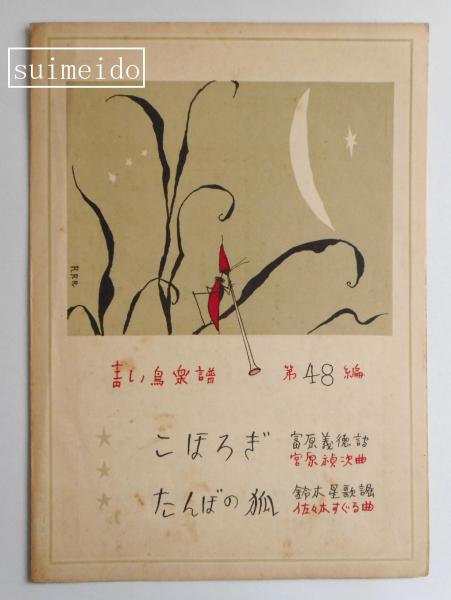 suimeido
RRR
青い鳥楽譜 第48編
こほろぎ
富原義徳詩
宮原禎次曲
たんぼの狐
鈴木星歌謡
佐々木すぐる曲